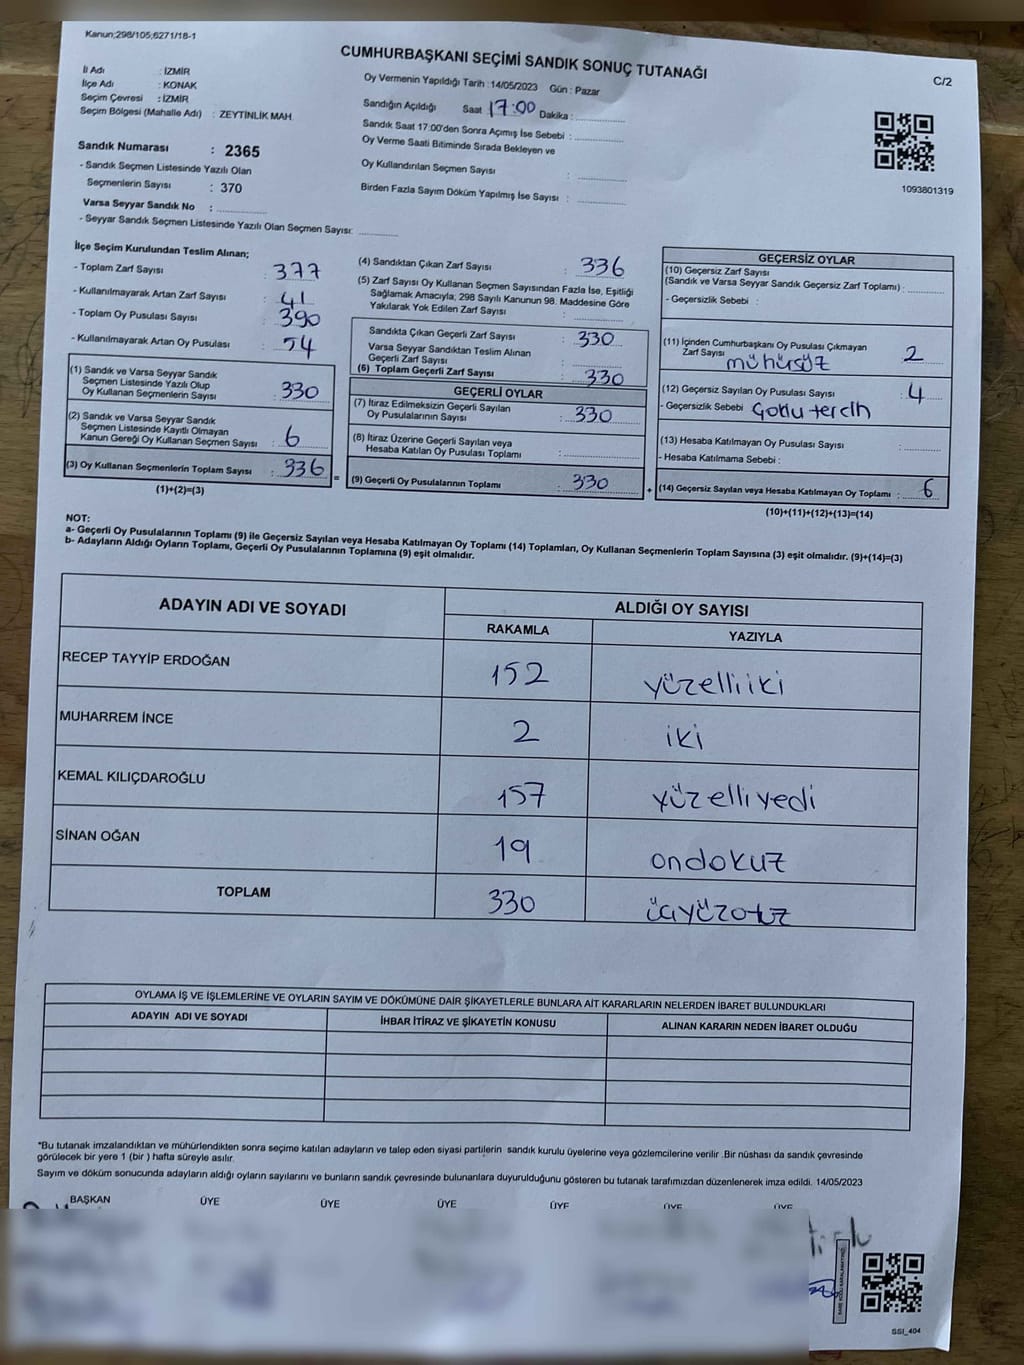 Kanun;298/105;6271/18-1
CUMHURBAŞKANI SEÇİMİ SANDIK SONUÇ TUTANAĞI
C/2
İl Adı : İZMİR
İlçe Adı : KONAK
Seçim Çevresi : İZMİR
Seçim Bölgesi (Mahalle Adı) : ZEYTİNLİK MAH.
Oy Vermenin Yapıldığı Tarih : 14/05/2023 Gün : Pazar
Sandığın Açıldığı Saat 17:00 Dakika :
Sandık Saat 17:00'den Sonra Açımış İse Sebebi :
Oy Verme Saati Bitiminde Sırada Bekleyen ve
Oy Kullandırılan Seçmen Sayısı :
Birden Fazla Sayım Döküm Yapılmış İse Sayısı :
1093801319
Sandık Numarası : 2365
- Sandık Seçmen Listesinde Yazılı Olan
Seçmenlerin Sayısı : 370
Varsa Seyyar Sandık No :
- Seyyar Sandık Seçmen Listesinde Yazılı Olan Seçmen Sayısı:
İlçe Seçim Kurulundan Teslim Alınan;
- Toplam Zarf Sayısı : 377
- Kullanılmayarak Artan Zarf Sayısı : 41
- Toplam Oy Pusulası Sayısı : 390
- Kullanılmayarak Artan Oy Pusulası : 54
(1) Sandık ve Varsa Seyyar Sandık
Seçmen Listesinde Yazılı Olup
Oy Kullanan Seçmenlerin Sayısı : 330
(2) Sandık ve Varsa Seyyar Sandık
Seçmen Listesinde Kayıtlı Olmayan
Kanun Gereği Oy Kullanan Seçmen Sayısı : 6
(3) Oy Kullanan Seçmenlerin Toplam Sayısı : 336 =
(1)+(2)=(3)
(4) Sandıktan Çıkan Zarf Sayısı : 336
(5) Zarf Sayısı Oy Kullanan Seçmen Sayısından Fazla İse, Eşitliği
Sağlamak Amacıyla; 298 Sayılı Kanunun 98. Maddesine Göre
Yakılarak Yok Edilen Zarf Sayısı :
Sandıkta Çıkan Geçerli Zarf Sayısı : 330
Varsa Seyyar Sandıktan Teslim Alınan
Geçerli Zarf Sayısı :
(6) Toplam Geçerli Zarf Sayısı : 330
GEÇERLİ OYLAR
(7) İtiraz Edilmeksizin Geçerli Sayılan
Oy Pusulalarının Sayısı : 330
(8) İtiraz Üzerine Geçerli Sayılan veya
Hesaba Katılan Oy Pusulası Toplamı :
(9) Geçerli Oy Pusulalarının Toplamı : 330 +
GEÇERSİZ OYLAR
(10) Geçersiz Zarf Sayısı
(Sandık ve Varsa Seyyar Sandık Geçersiz Zarf Toplamı) :
- Geçersizlik Sebebi :
(11) İçinden Cumhurbaşkanı Oy Pusulası Çıkmayan
Zarf Sayısı 2
mühürsüz
(12) Geçersiz Sayılan Oy Pusulası Sayısı : 4
- Geçersizlik Sebebi Çoklu tercih
(13) Hesaba Katılmayan Oy Pusulası Sayısı :
- Hesaba Katılmama Sebebi :
(14) Geçersiz Sayılan veya Hesaba Katılmayan Oy Toplamı : 6
(10)+(11)+(12)+(13)=(14)
NOT:
a- Geçerli Oy Pusulalarının Toplamı (9) ile Geçersiz Sayılan veya Hesaba Katılmayan Oy Toplamı (14) Toplamları, Oy Kullanan Seçmenlerin Toplam Sayısına (3) eşit olmalıdır. (9)+(14)=(3)
b- Adayların Aldığı Oyların Toplamı, Geçerli Oy Pusulalarının Toplamına (9) eşit olmalıdır.
ADAYIN ADI VE SOYADI ALDIĞI OY SAYISI
RAKAMLA YAZIYLA
RECEP TAYYİP ERDOĞAN 152 yüzelliiki
MUHARREM İNCE 2 iki
KEMAL KILIÇDAROĞLU 157 yüzelliyedi
SİNAN OĞAN 19 ondokuz
TOPLAM 330 üçyüzotuz
OYLAMA İŞ VE İŞLEMLERİNE VE OYLARIN SAYIM VE DÖKÜMÜNE DAİR ŞİKAYETLERLE BUNLARA AİT KARARLARIN NELERDEN İBARET BULUNDUKLARI
ADAYIN ADI VE SOYADI İHBAR İTİRAZ VE ŞİKAYETİN KONUSU ALINAN KARARIN NEDEN İBARET OLDUĞU
*Bu tutanak imzalandıktan ve mühürlendikten sonra seçime katılan adayların ve talep eden siyasi partilerin sandık kurulu üyelerine veya gözlemcilerine verilir .Bir nüshası da sandık çevresinde
görülecek bir yere 1 (bir ) hafta süreyle asılır.
Sayım ve döküm sonucunda adayların aldığı oyların sayılarını ve bunların sandık çevresinde bulunanlara duyurulduğunu gösteren bu tutanak tarafımızdan düzenlenerek imza edildi. 14/05/2023
BAŞKAN ÜYE ÜYE ÜYE ÜYE ÜYE ÜYE
SSI_404